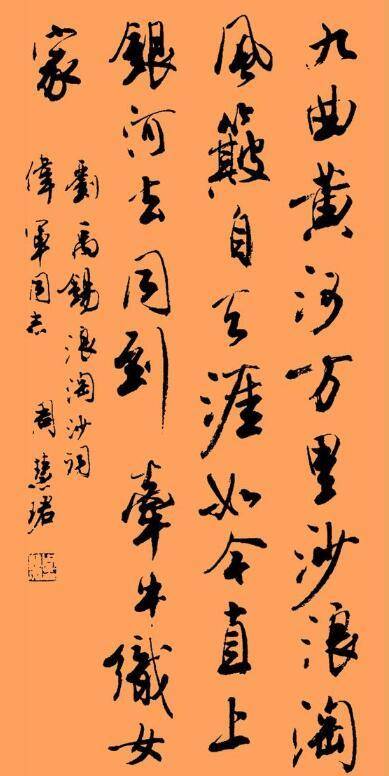 九曲黃河万里沙浪淘
風簸自天涯如今直上
銀河去同到牽牛織女
家
劉禹錫浪淘沙詞
偉軍同志 周慧珺